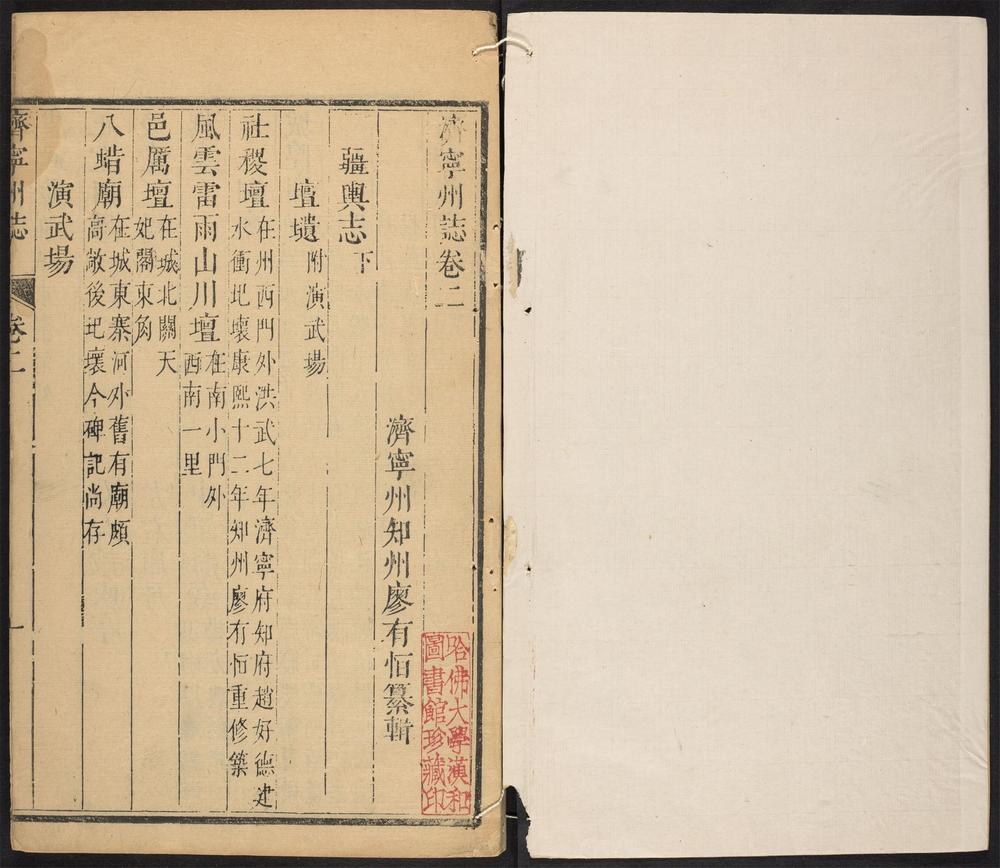 濟寧州誌卷二
濟寧州知州廖有恒纂輯
疆輿志下
壇壝附演武場
社稷壇在州西門外洪武七年濟寧府知府趙好德建
水衝圮壞康熙十二年知州廖有恒重修築
風雲雷雨山川壇在南小門外
西南一里
邑厲壇在城北關天
妃閣東角
八蜡廟在城東寨河外舊有廟頗
高敞後圮壞今碑記尚存
演武場
濟寧州誌 卷二 一
哈佛大學漢和
圖書館珍藏印